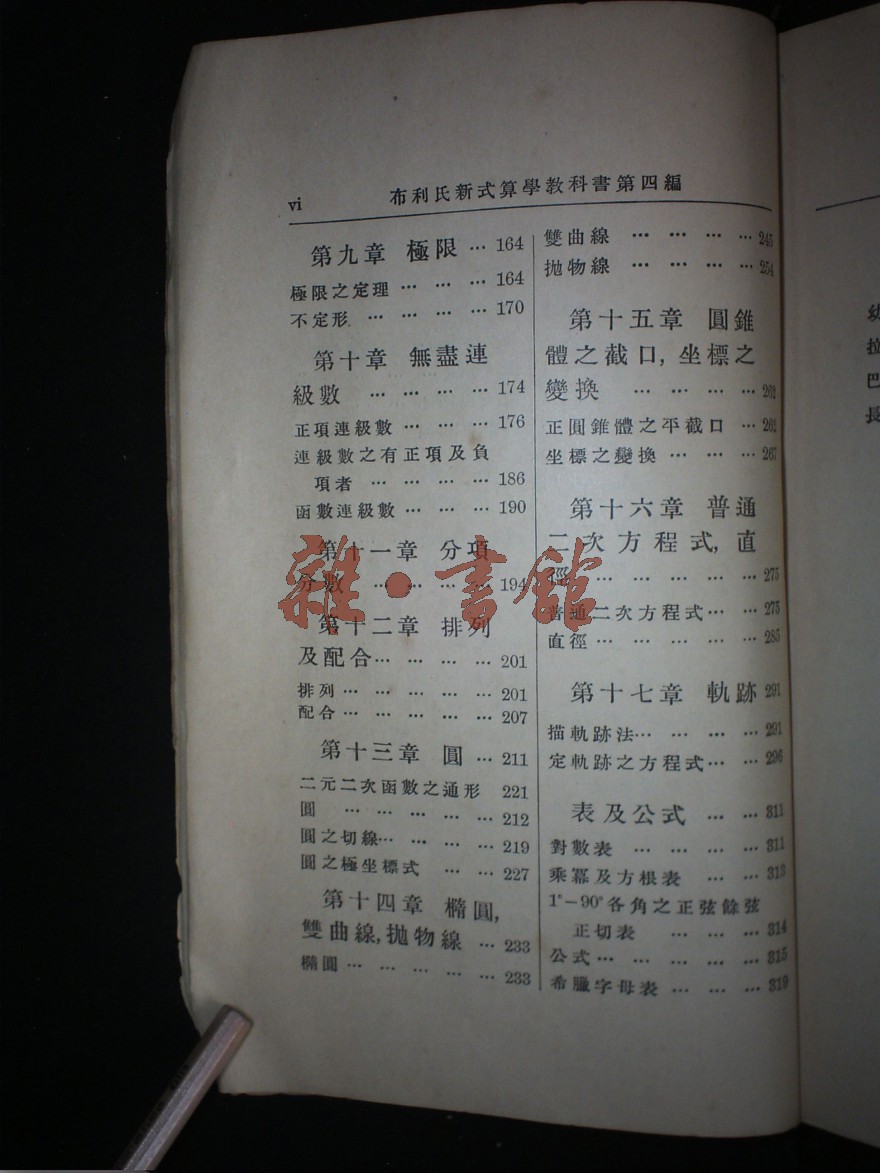 vi 布利氏新式算學教科書第四編
第九章 極限 … 164
極限之定理 … … … 164
不定形 … … … … 170
第十章 無盡連
級數 … … … … 174
正項連級數 … … … 176
連級數之有正項及負
項者 … … … … 186
函數連級數 … … … 190
第十一章 分項
分數 … … … … 194
第十二章 排列
及配合 … … … … 201
排列 … … … … … 201
配合 … … … … … 207
第十三章 圓 … 211
二元二次函數之通形 221
圓 … … … … … 212
圓之切線 … … … … 219
圓之極坐標式 … … 227
第十四章 橢圓,
雙曲線,拋物線 … 233
橢圓 … … … … … 233
雙曲線 … … … … 245
拋物線 … … … … 254
第十五章 圓錐
體之截口,坐標之
變換 … … … … 262
正圓錐體之平截口 … 262
坐標之變換 … … … 267
第十六章 普通
二次方程式,直
徑 … … … … … 275
普通二次方程式 … … 275
直徑 … … … … … 285
第十七章 軌跡 291
描軌跡法 … … … … 291
定軌跡之方程式 … … 296
表及公式 … … 311
對數表 … … … … 311
乘冪及方根表 … … 313
1°–90°各角之正弦餘弦
正切表 … … … 314
公式 … … … … … 315
希臘字母表 … … … 319
雜·書館
幼
拉
巴
長